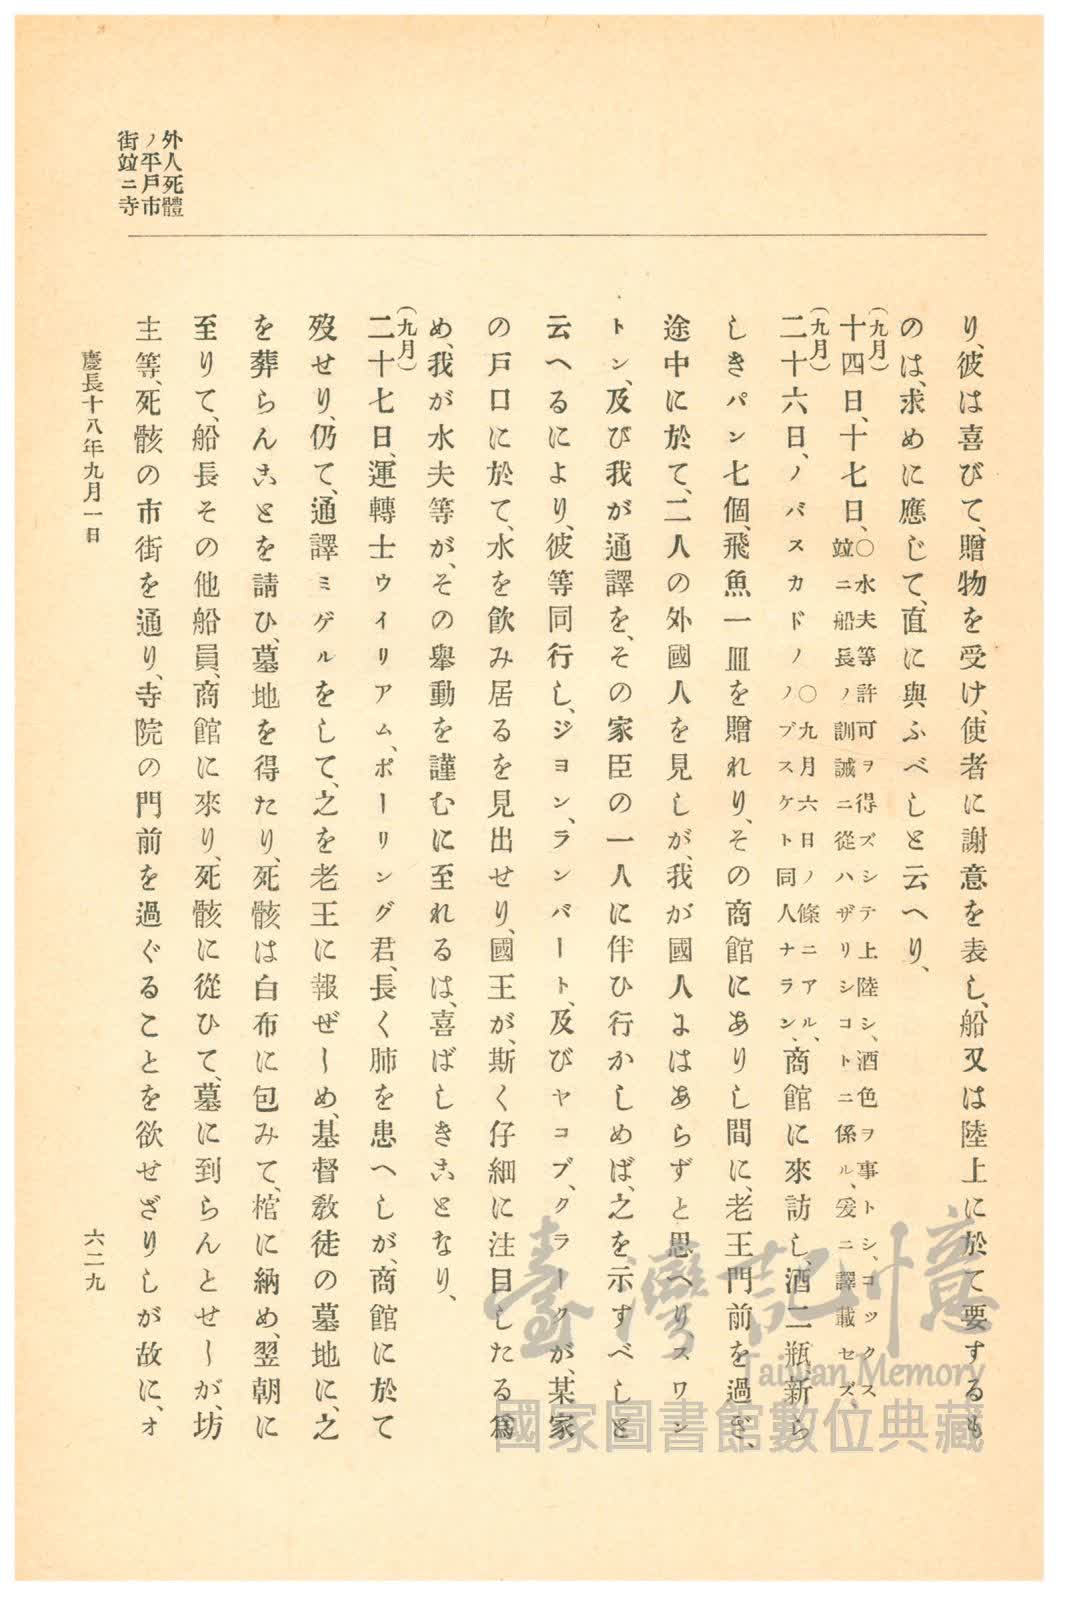 外人死體
ノ平戸市
街竝ニ寺
り、彼は喜びて、贈物を受け、使者に謝意を表し、船又は陸上に於て要するも
のは、求めに應じて、直に與ふべしと云へり、
(九月)
十四日、十七日、〇水夫等許可ヲ得ズシテ上陸シ、酒色ヲ事トシ、コツクス
竝ニ船長ノ訓誡ニ從ハザリシコトニ係ル、爰ニ譯載セズ、
(九月)
二十六日、ノバスカドノ〇九月六日ノ條ニアル、
ノブスケト同人ナラン、商館に來訪し、酒二瓶、新ら
しきパン七個、飛魚一皿を贈れり、その商館にありし間に、老王門前を過ぎ、
途中に於て、二人の外國人を見しが、我が國人にはあらずと思へりスワン
トン、及び我が通譯を、その家臣の一人に伴ひ行かしめば、之を示すべしと
云へるにより、彼等同行し、ジヨン、ランバート、及びヤコブ、クラークが、某家
の戸口に於て、水を飮み居るを見出せり、國王が、斯く仔細に注目したる爲
め、我が水夫等が、その擧動を謹むに至れるは、喜ばしきことなり、
(九月)
二十七日、運轉士ウイリアム、ポーリング君、長く肺を患へしが、商館に於て
歿せり、仍て、通譯ミゲルをして、之を老王に報ぜしめ、基督敎徒の墓地に、之
を葬らんことを請ひ、墓地を得たり、死骸は白布に包みて、棺に納め、翌朝に
至りて、船長その他船員、商館に來り、死骸に從ひて、墓に到らんとせしが、坊
主等、死骸の市街を通り、寺院の門前を過ぐることを欲せざりしが故に、オ
慶長十八年九月一日
六二九
臺灣記憶
Taiwan Memory
國家圖書館數位典藏